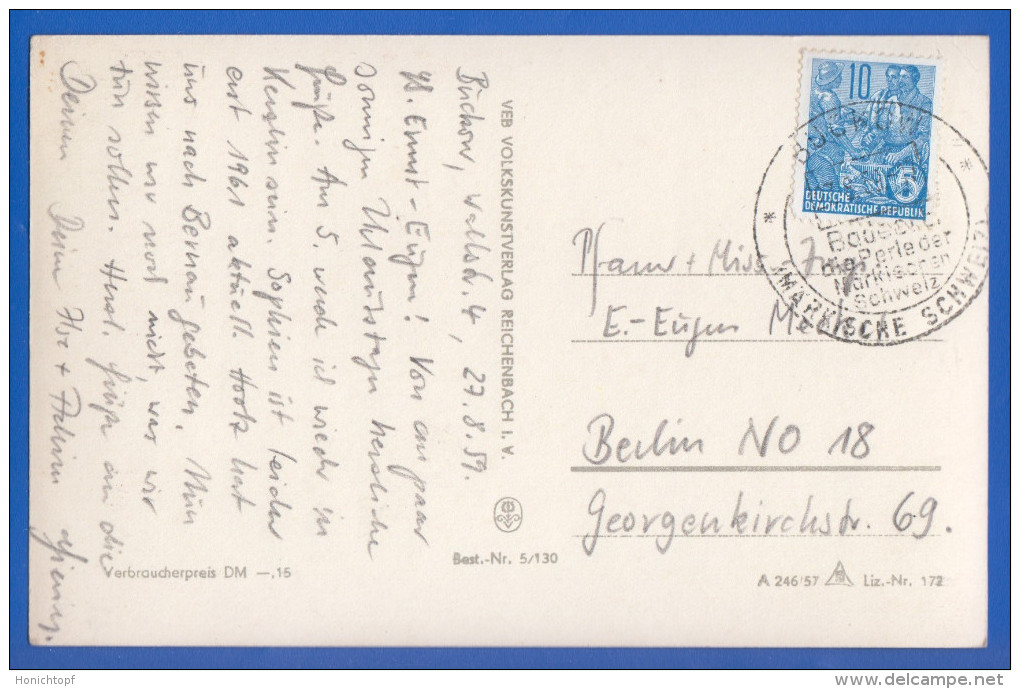 Buckow, Wallstr. 4, 27.8.59.
Ernst-Eugen! Von ein paar
sonnigen Urlaubstagen herzliche
Grüße. Am 5. werde ich wieder in
sein. Sophien ist leider
erst 1961 aktuell. hat
uns nach Bernau gebeten. Nun
wissen wir noch nicht, was wir
tun sollen. Herzl. Grüße an die
Deinen Dein +
VEB VOLKSKUNSTVERLAG REICHENBACH I. V.
Best.-Nr. 5/130
Verbraucherpreis DM —,15
10
5
DEUTSCHE
DEMOKRATISCHE REPUBLIK
BUCKOW
die Perle der
Märkischen
Schweiz
(MÄRKISCHE SCHWEIZ)
Pfarrer + Miss.
E.-Eugen
Berlin NO 18
Georgenkirchstr. 69.
A 246/57 Liz.-Nr. 172
Honichtopf
delcampe.net